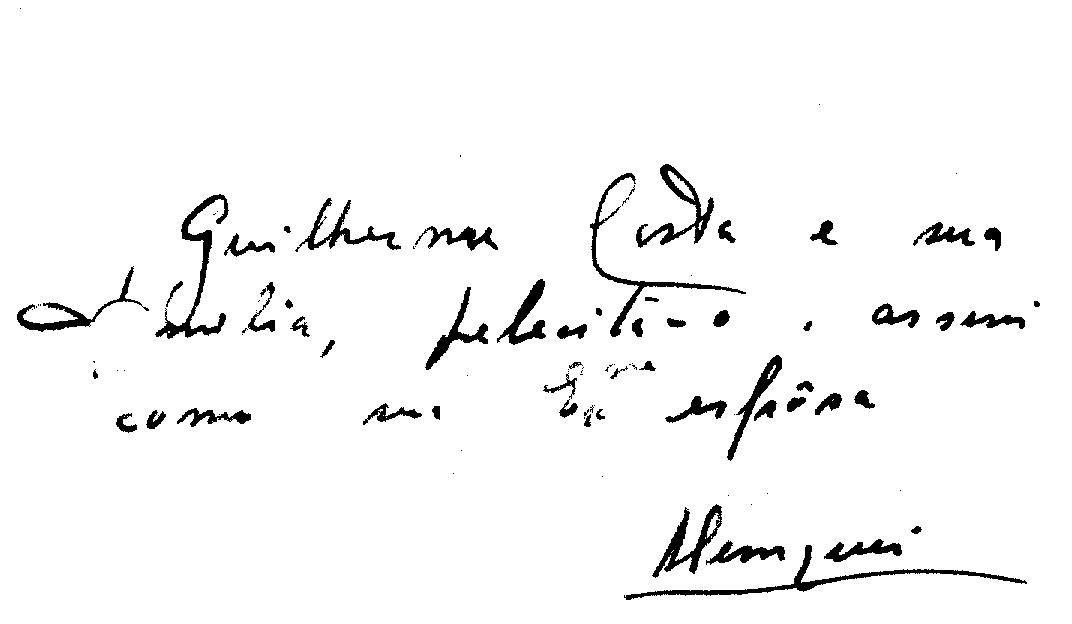 Guilherme Costa e sua
família, felicitã-o, assim
como sua Ex.ma espôsa